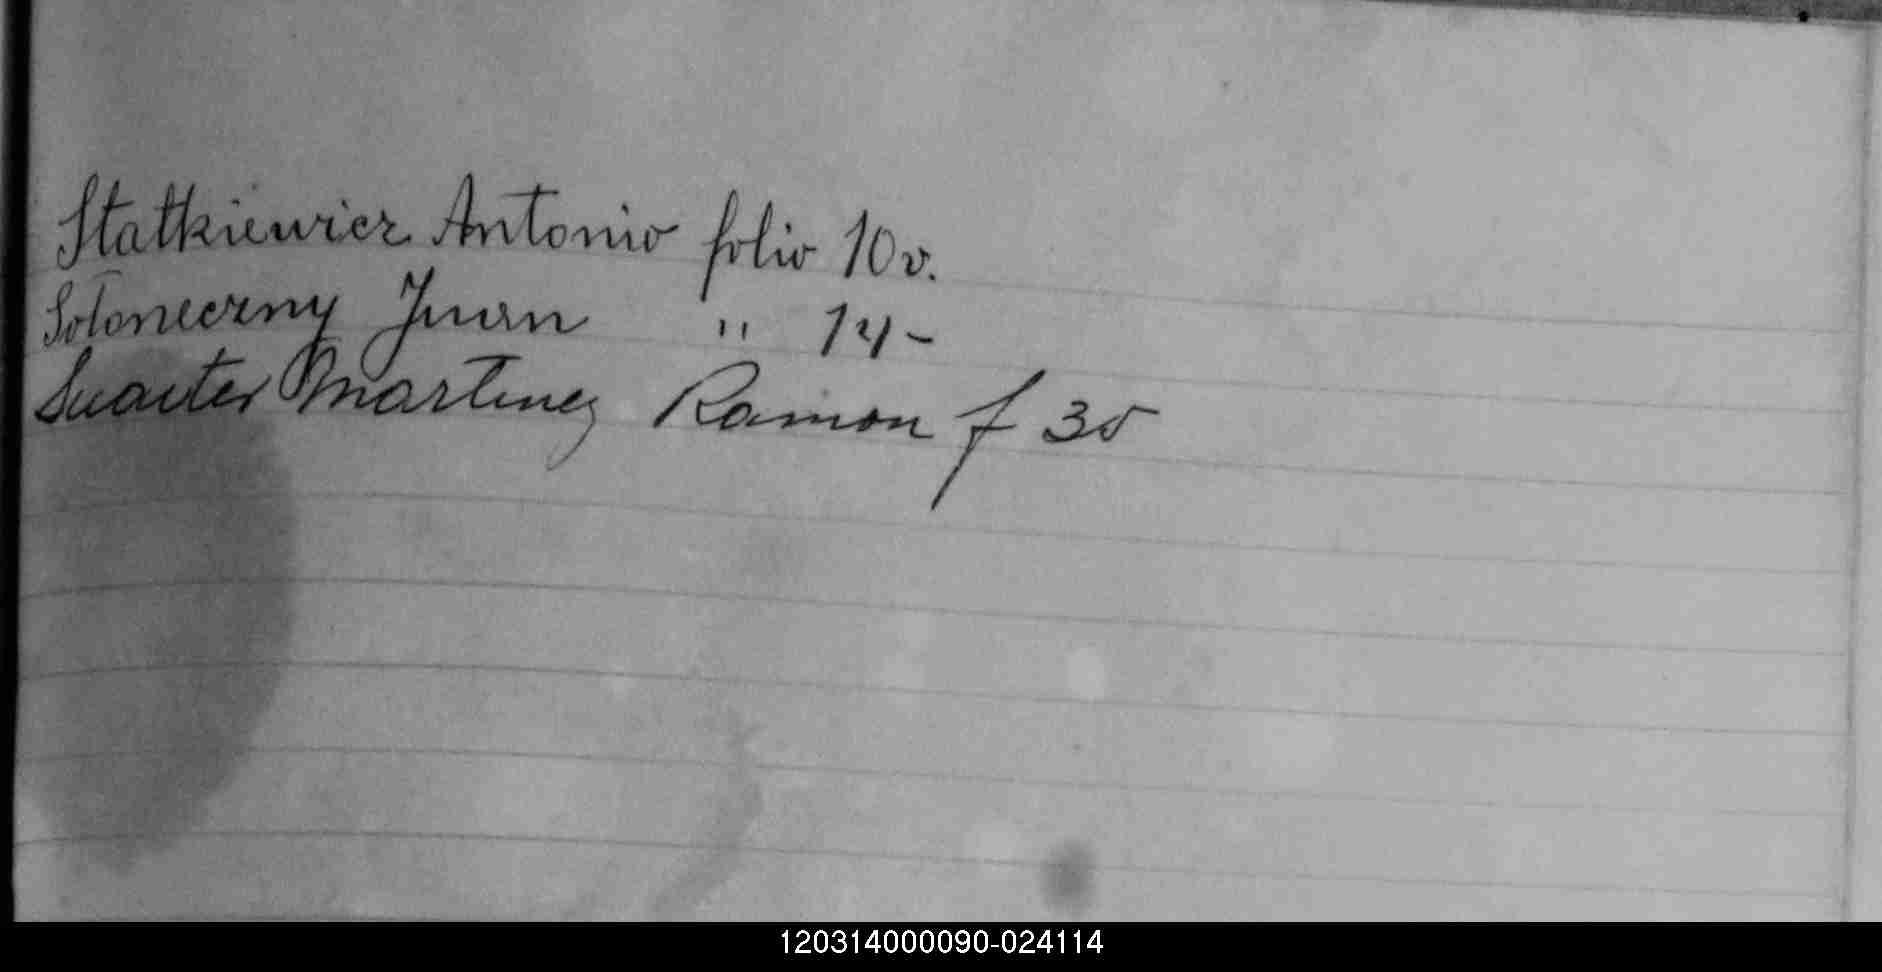 Statkiewicz Antonio folio 10 v.
Soloneczny Juan " 14 -
Martinez Ramon f 35
120314000090-024114